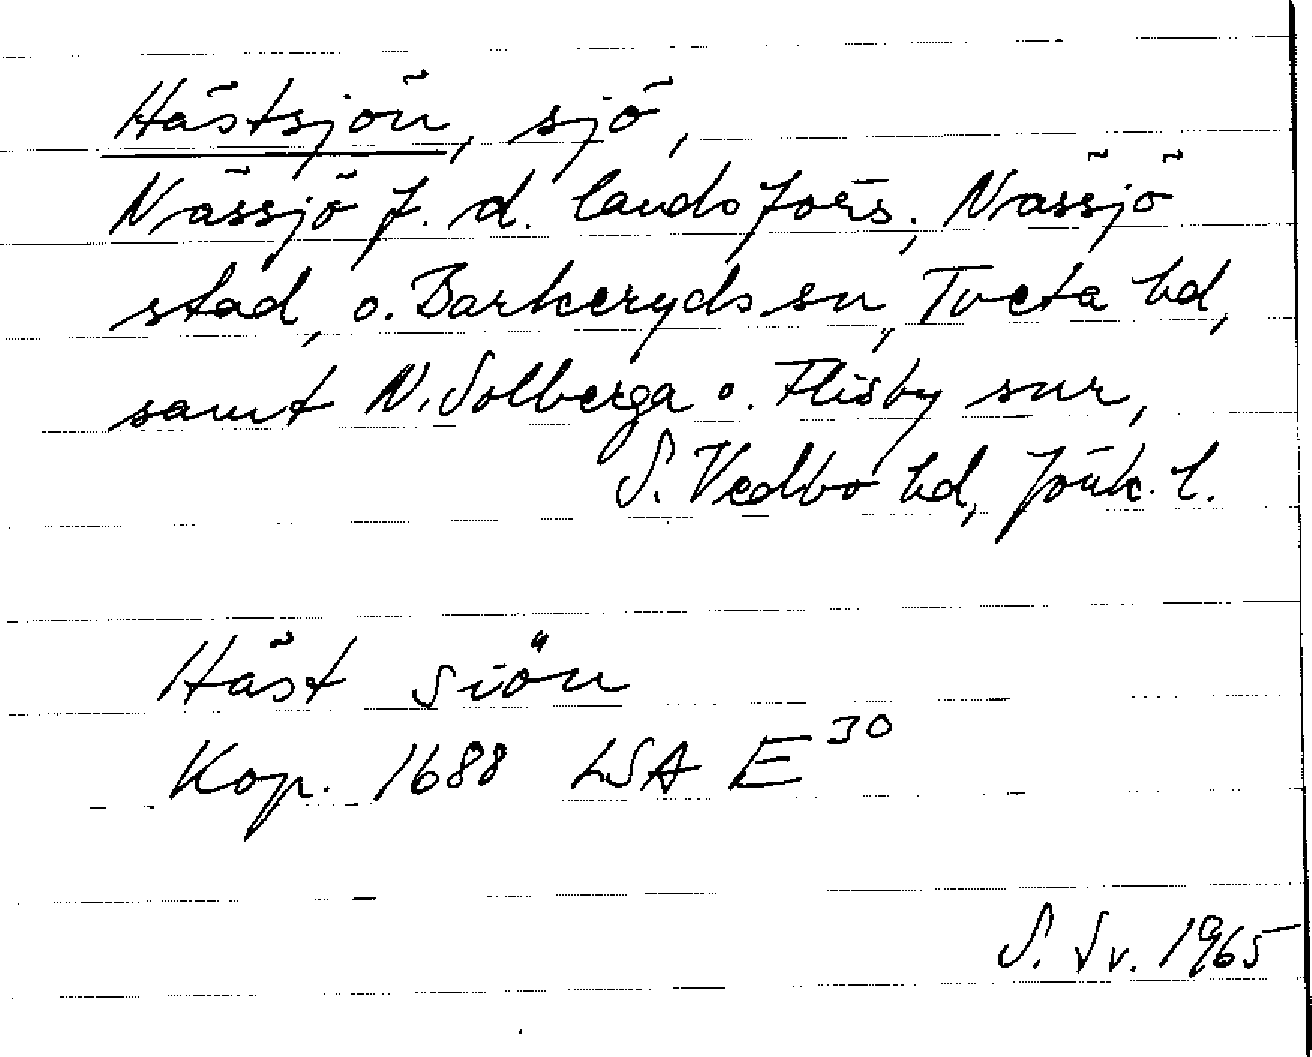 Hästsjön, sjö,
Nässjö f. d. landsförs., Nässjö
stad, o. Barkeryds sn, Tveta hd,
samt N. Solberga o. Flisby snr,
S. Vedbo hd, Jönk. l.
Häst siön
Kop. 1688 LSA E 30
S. Sv. 1965